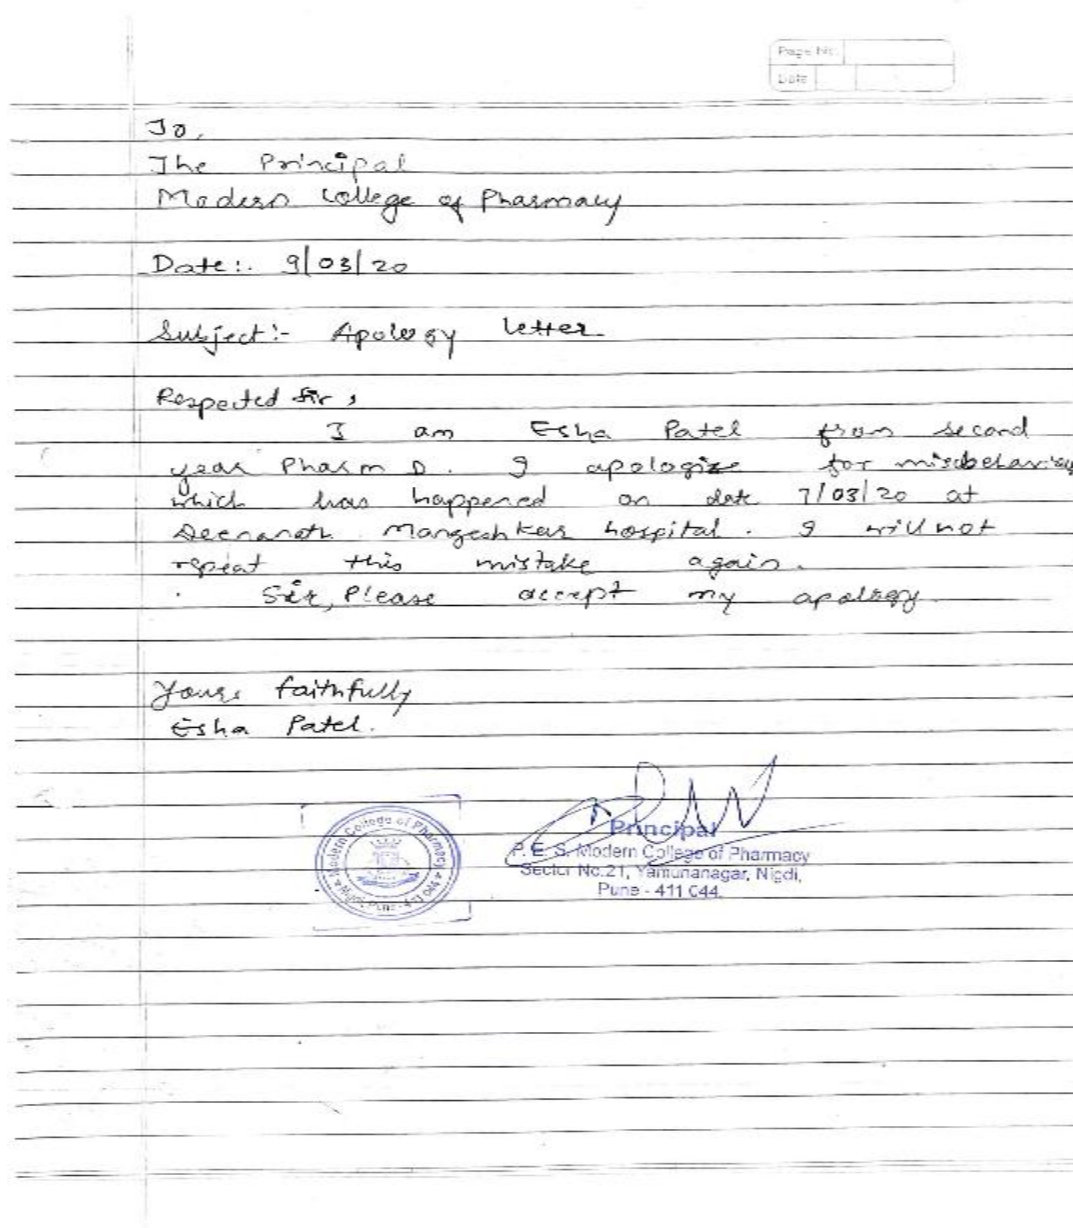 Page No.
Date
To,
The Principal
Modern College of Pharmacy
Date:- 9/03/20
Subject:- Apology letter
Respected Sir,
I am Esha Patel from second
year Pharm D. I apologize for misbehaviour
which has happened on date 7/03/20 at
Deenanath Mangeshkar hospital. I will not
repeat this mistake again.
Sir, Please accept my apology.
Yours faithfully
Esha Patel.
Modern College of Pharmacy
Nigdi, Pune - 411 044
Principal
P. E. S. Modern College of Pharmacy
Sector No.21, Yamunanagar, Nigdi,
Pune - 411 044.